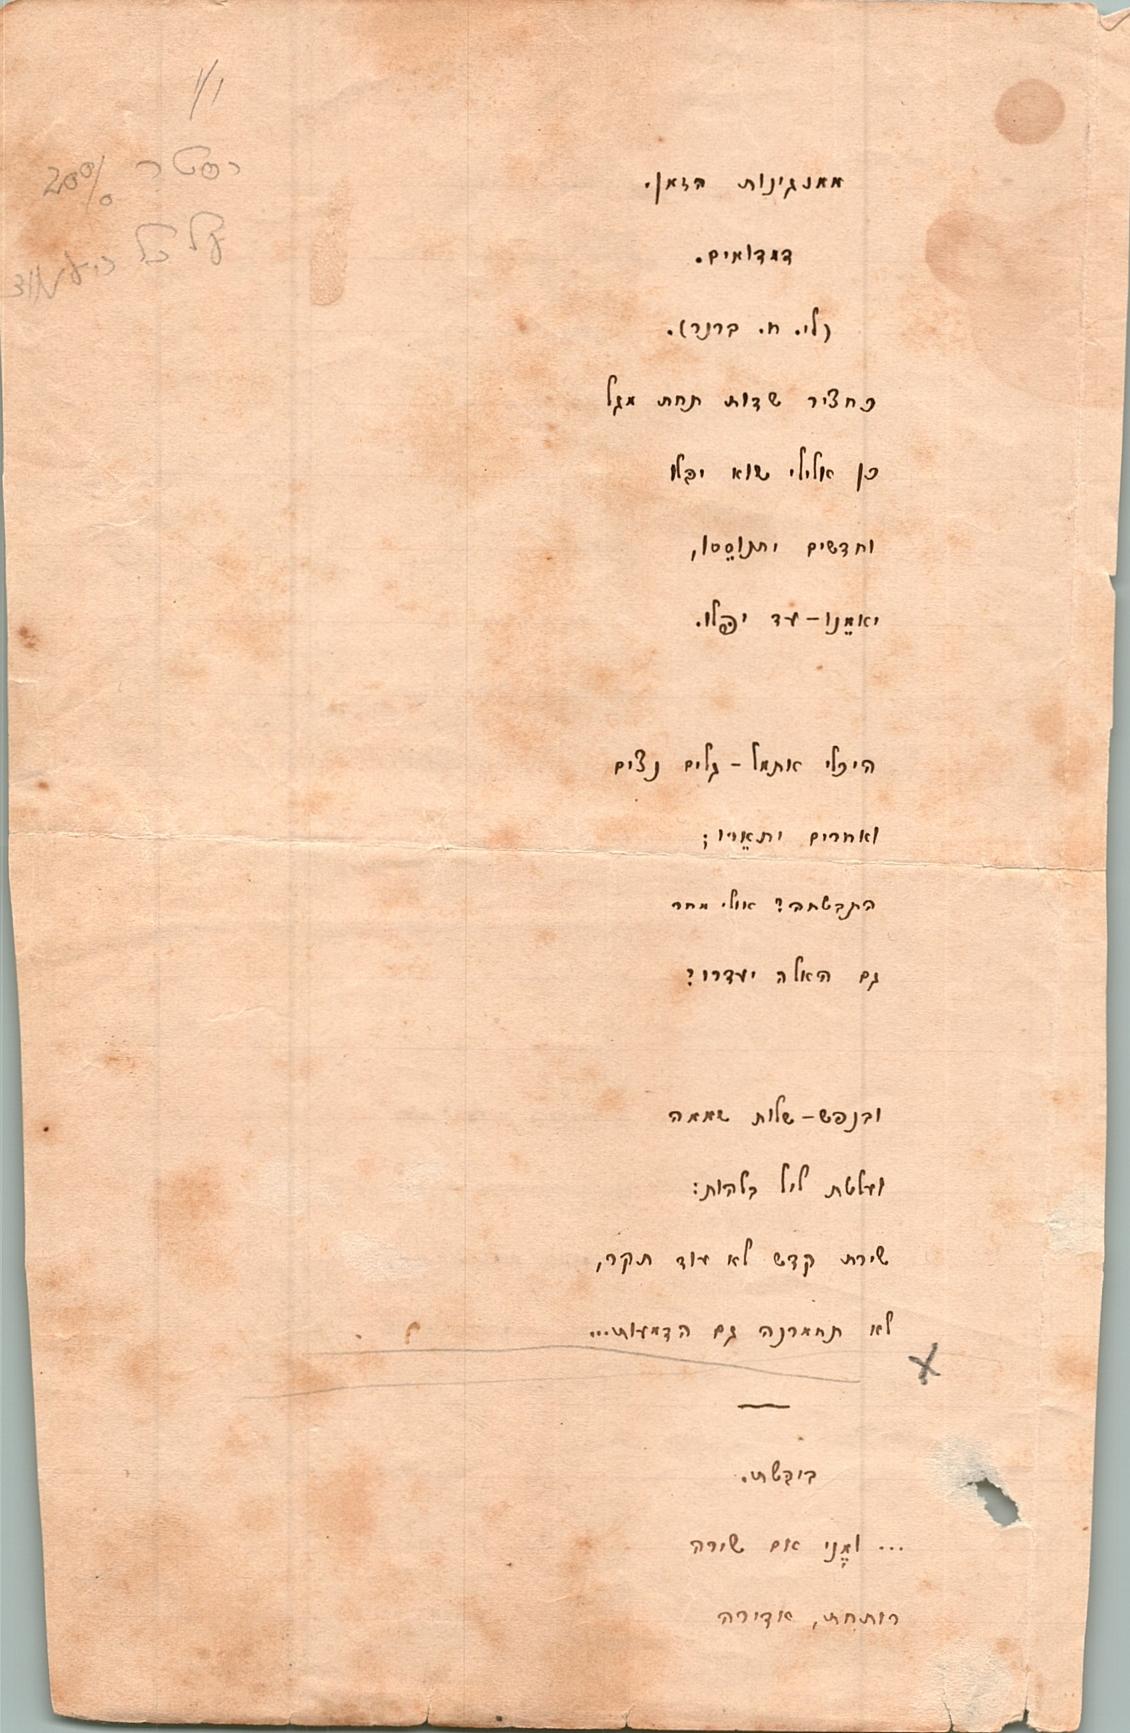 ו/ו
רסטר 20%
על כל העמוד
ממנגינות הזמן.
דמדומים.
(לי. ח. ברנר).
כחציר שדות תחת מגל
כן אלילי שוא יבלו
וחדשים יתנוססו,
יאמנו – עד יפלו.
היכלי אתמל – גלים נצים
ואחרים יתארו;
התבטחה? אולי מחר
גם האלה יעדרו?
ובנפש – שלות שממה
ועלטת ליל בלהות:
שירת קדש לא עוד תקר,
לא תחמרנה גם הדמעות...
X
בוקשתי.
... ומני אם שירה
רותחת, אדירה